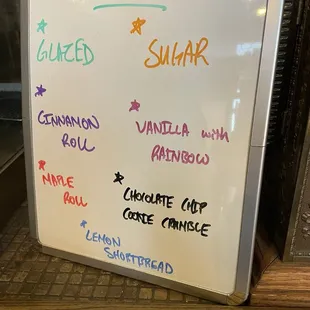 GLAZED
SUGAR
CINNAMON
ROLL
VANILLA with
RAINBOW
MAPLE
ROLL
CHOCOLATE CHIP
COOKIE CRUMBLE
LEMON
SHORTBREAD